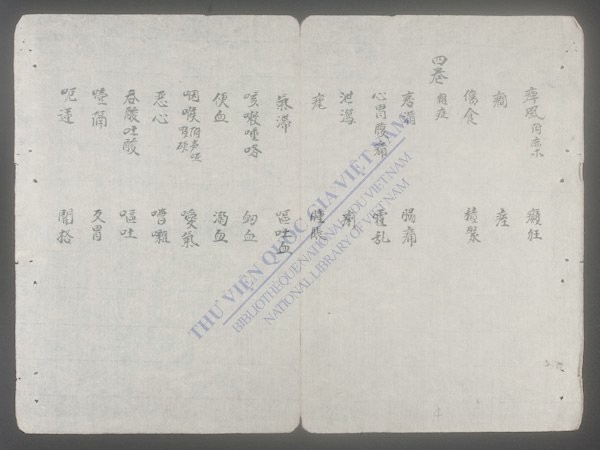 痺風附麻木 癲狂
癇 痓
傷食 積聚
四卷 症
痞滿 腸痛
心胃腹痛 霍乱
泄瀉 痢
腫脹
氣滯 嘔吐血
咳嗽唾咯 衂血
便血 溺血
咽喉附声啞 噯氣
惡心 嘈雜
吞酸吐酸 嘔吐
噎膈 反胃
呃逆 關格
THƯ VIỆN QUỐC GIA VIỆT NAM
BIBLIOTHÈQUE NATIONALE DU VIETNAM
NATIONAL LIBRARY OF VIETNAM